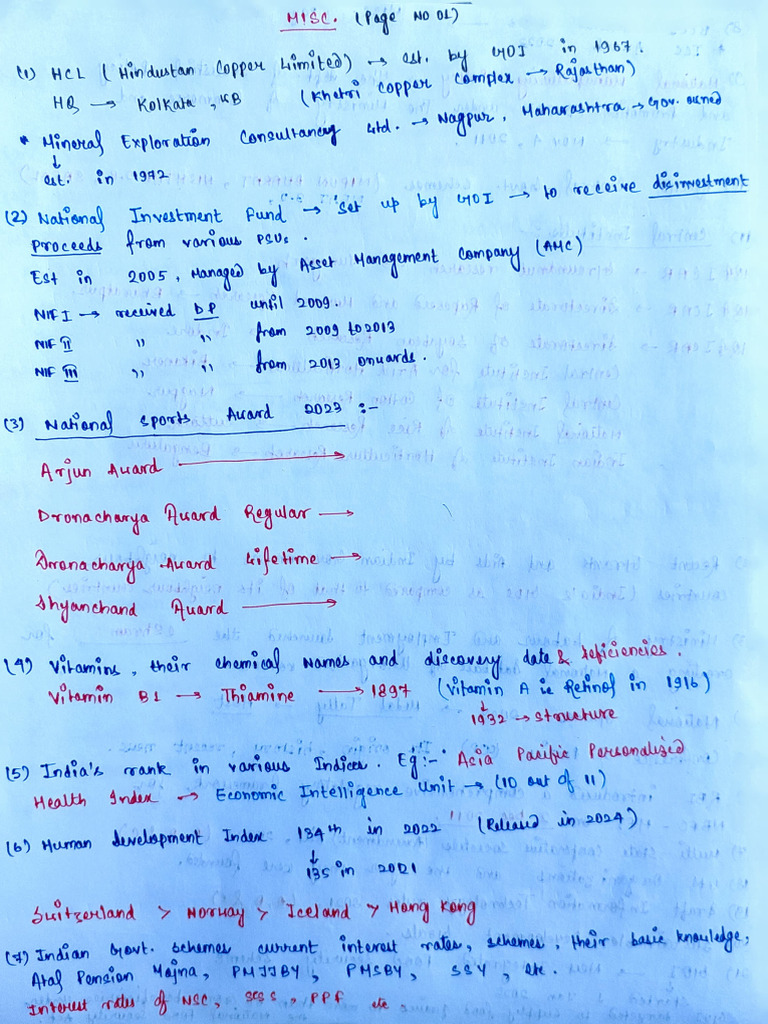 MISC. (Page NO 01)
(1) HCL (Hindustan Copper Limited) → est. by GOI in 1967.
HQ → Kolkata, WB (Khetri copper complex → Rajasthan)
* Mineral Exploration Consultancy Ltd. → Nagpur, Maharashtra → Gov. owned
↓
est. in 1972
(2) National Investment Fund → set up by GOI → to receive disinvestment
proceeds from various PSUs.
Est in 2005, Managed by Asset Management Company (AMC)
NIF I → received DP until 2009.
NIF II " " from 2009 to 2013
NIF III " " from 2013 onwards.
(3) National Sports Award 2023 :-
Arjun Award →
Dronacharya Award Regular →
Dronacharya Award Lifetime →
Dhyanchand Award →
(4) Vitamins, their chemical Names and discovery date & deficiencies.
Vitamin B1 → Thiamine → 1897 (Vitamin A ie Retinol in 1916)
↓
1932 → structure
(5) India's rank in various Indices. Eg:- Asia Pacific Personalised
Health Index → Economic Intelligence Unit → (10 out of 11)
(6) Human development Index 134th in 2022 (Released in 2024)
↓
135 in 2021
Switzerland > Norway > Iceland > Hong Kong
(7) Indian Govt. schemes current interest rates, schemes, their basic knowledge,
Atal Pension Yojna, PMJJBY, PMSBY, SSY, etc.
Interest rates of NSC, SCSS, PPF etc